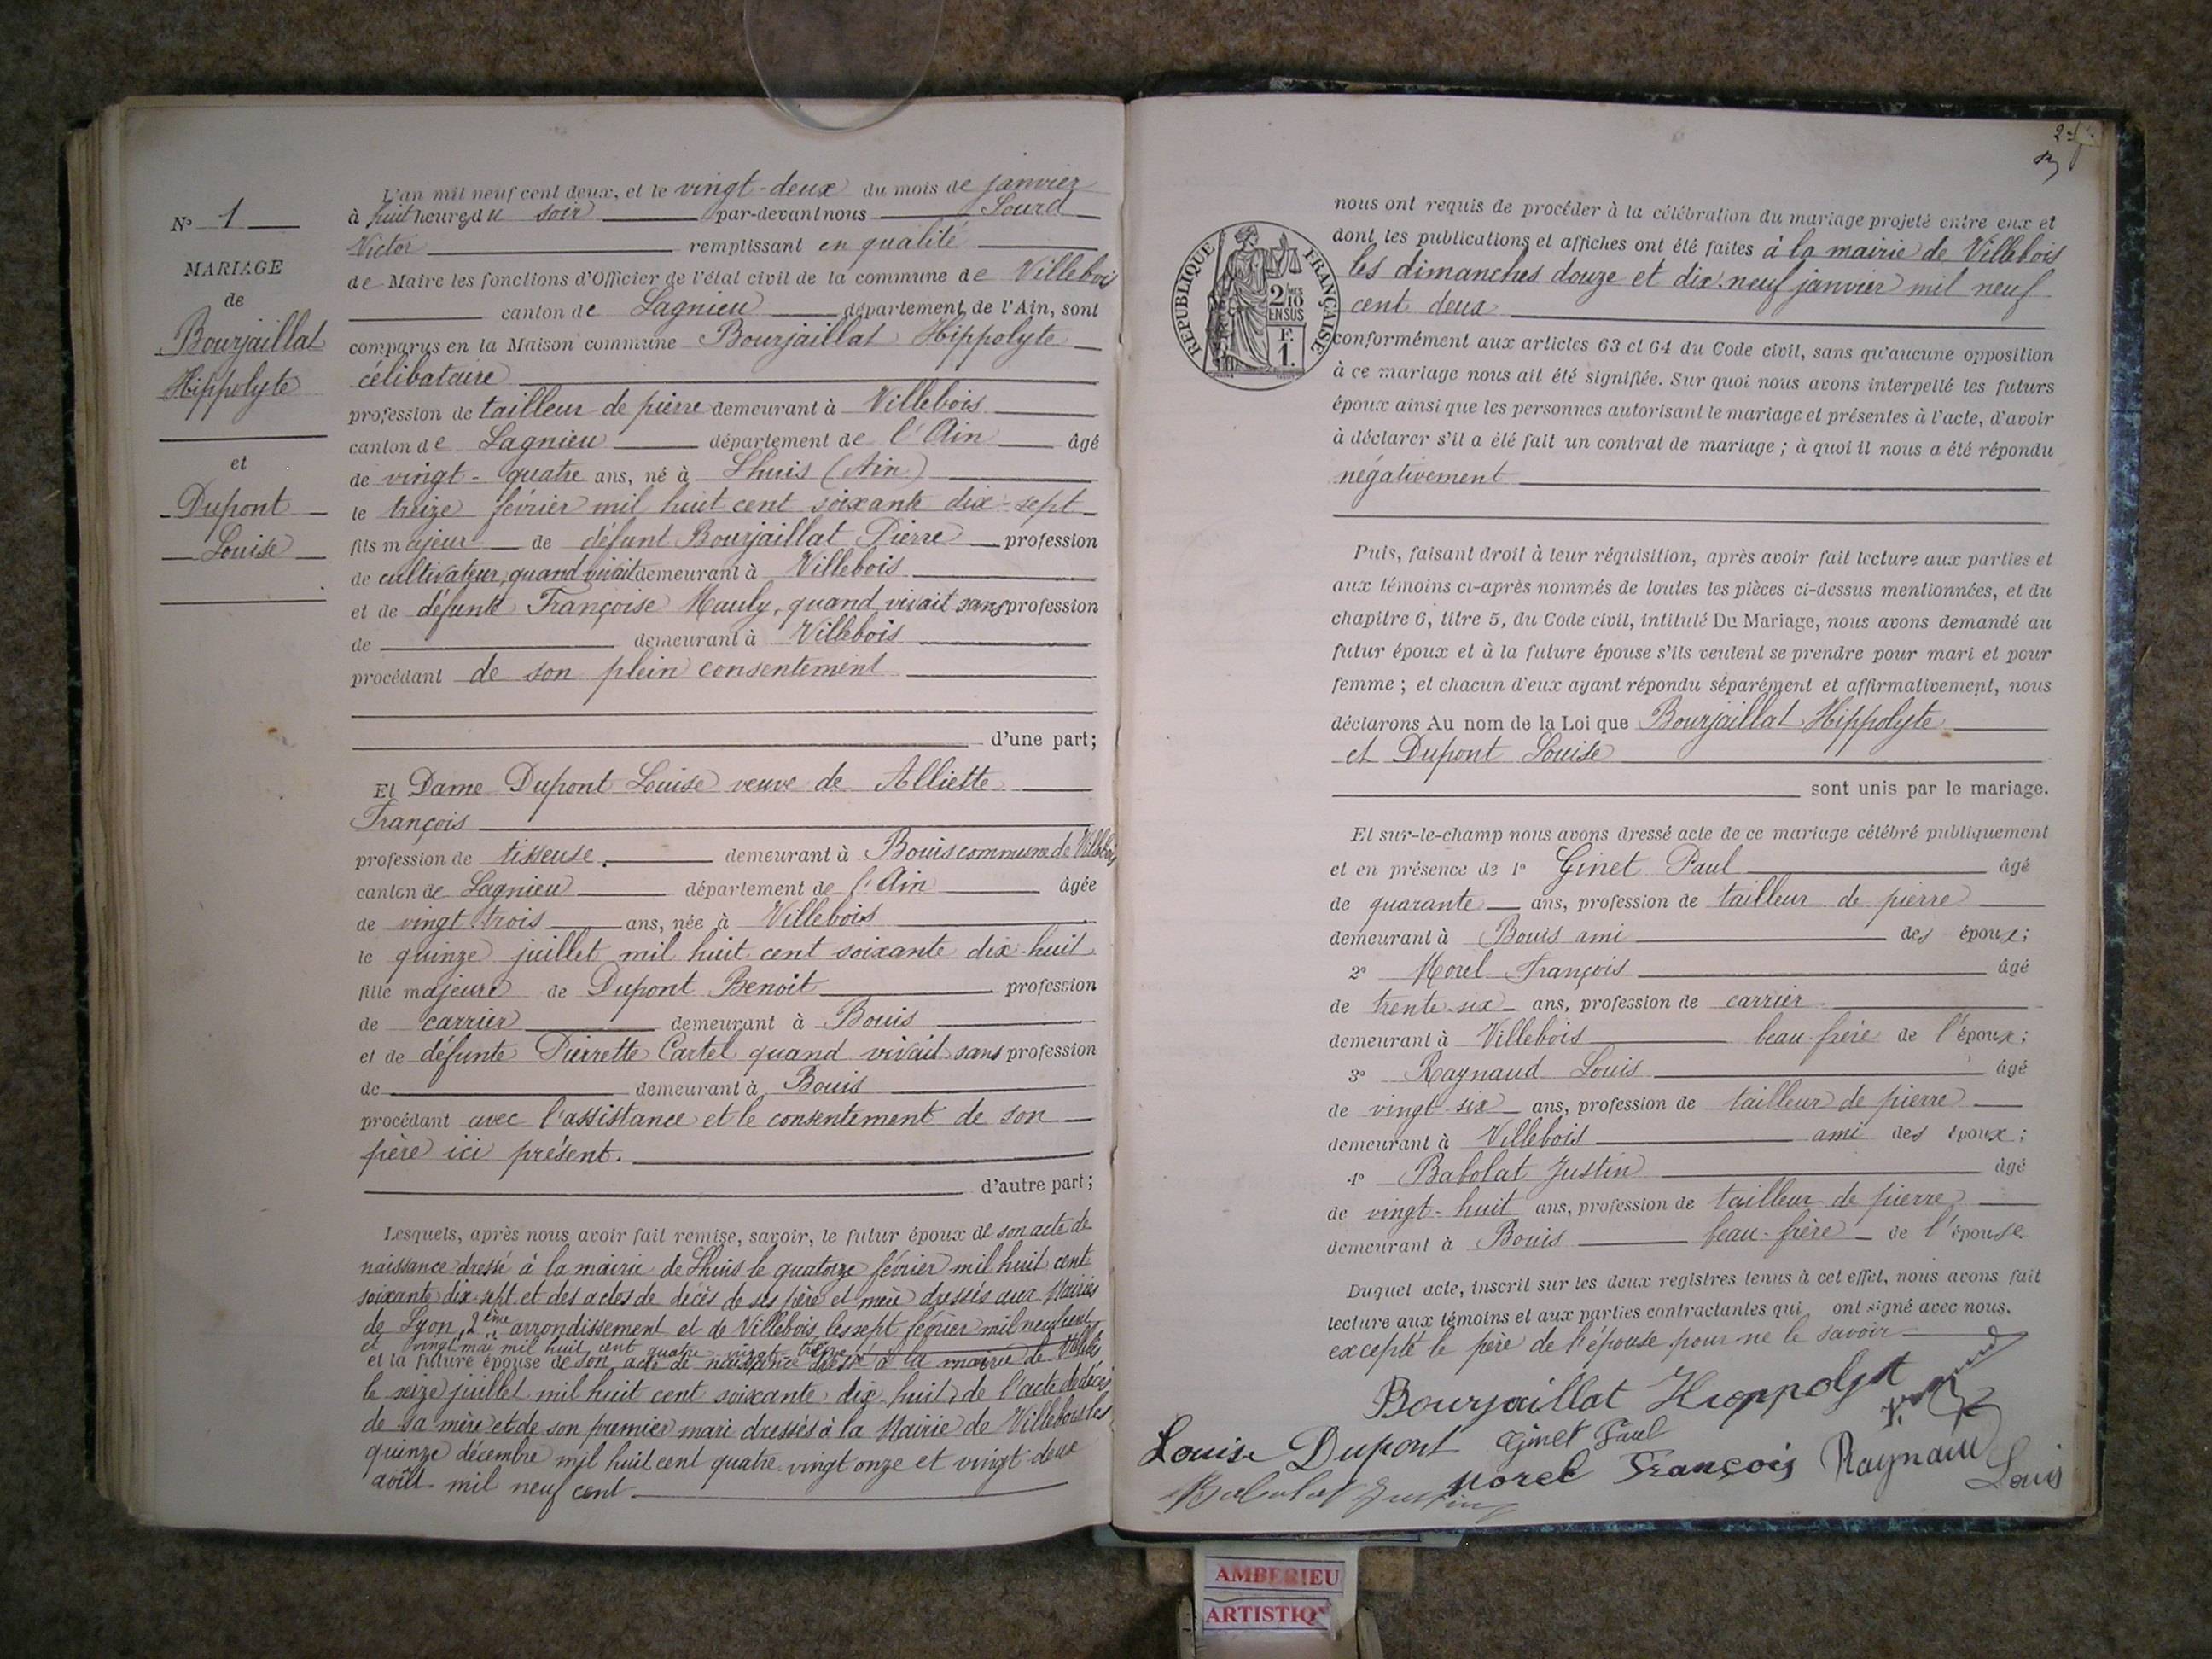 N° 1
MARIAGE
de
Bourjaillat
Hippolyte
et
Dupont
Louise
L'an mil neuf cent deux, et le vingt-deux du mois de janvier
à huit heures du soir par-devant nous Sourd
Victor remplissant en qualité
de Maire les fonctions d'Officier de l'état civil de la commune de Villebois
canton de Lagnieu département de l'Ain, sont
comparus en la Maison commune Bourjaillat Hippolyte
célibataire
profession de tailleur de pierre demeurant à Villebois
canton de Lagnieu département de l'Ain âgé
de vingt-quatre ans, né à Lhuis (Ain)
le treize février mil huit cent soixante dix-sept
fils majeur de défunt Bourjaillat Pierre profession
de cultivateur, quand vivait demeurant à Villebois
et de défunte Françoise Mauly, quand vivait sans profession
de demeurant à Villebois
procédant de son plein consentement
d'une part;
Et Dame Dupont Louise veuve de Alliette
François
profession de tisseuse. demeurant à Bouis commune de Villebois
canton de Lagnieu département de l'Ain âgée
de vingt trois ans, née à Villebois
le quinze juillet mil huit cent soixante dix-huit
fille majeure de Dupont Benoit profession
de carrier demeurant à Bouis
et de défunte Pierrette Cartel quand vivait sans profession
de demeurant à Bouis
procédant avec l'assistance et le consentement de son
père ici présent.
d'autre part;
Lesquels, après nous avoir fait remise, savoir, le futur époux de son acte de
naissance dressé à la mairie de Lhuis le quatorze février mil huit cent
soixante dix-sept et des actes de décès de ses père et mère dressés aux Mairies
de Lyon, 2ème arrondissement et de Villebois, les sept février mil neuf cent
et vingt mai mil huit cent quatre vingt treize
et la future épouse de son acte de naissance dressé à la mairie de Villebois
le seize juillet mil huit cent soixante dix huit, de l'acte de décès
de sa mère et de son premier mari dressés à la Mairie de Villebois les
quinze décembre mil huit cent quatre-vingt onze et vingt-deux
août mil neuf cent
RÉPUBLIQUE FRANÇAISE
2 MES
10
EN SUS
F.
1.
nous ont requis de procéder à la célébration du mariage projeté entre eux et
dont les publications et affiches ont été faites à la mairie de Villebois
les dimanches douze et dix-neuf janvier mil neuf
cent deux
conformément aux articles 63 et 64 du Code civil, sans qu'aucune opposition
à ce mariage nous ait été signifiée. Sur quoi nous avons interpellé les futurs
époux ainsi que les personnes autorisant le mariage et présentes à l'acte, d'avoir
à déclarer s'il a été fait un contrat de mariage ; à quoi il nous a été répondu
négativement
Puis, faisant droit à leur réquisition, après avoir fait lecture aux parties et
aux témoins ci-après nommés de toutes les pièces ci-dessus mentionnées, et du
chapitre 6, titre 5, du Code civil, intitulé Du Mariage, nous avons demandé au
futur époux et à la future épouse s'ils veulent se prendre pour mari et pour
femme ; et chacun d'eux ayant répondu séparément et affirmativement, nous
déclarons Au nom de la Loi que Bourjaillat Hippolyte
et Dupont Louise
sont unis par le mariage.
Et sur-le-champ nous avons dressé acte de ce mariage célébré publiquement
et en présence de 1° Ginet Paul âgé
de quarante ans, profession de tailleur de pierre
demeurant à Bouis ami des époux;
2° Morel François âgé
de trente-six ans, profession de carrier
demeurant à Villebois beau-frère de l'époux;
3° Raynaud Louis âgé
de vingt-six ans, profession de tailleur de pierre
demeurant à Villebois ami des époux;
4° Babolat Justin âgé
de vingt-huit ans, profession de tailleur de pierre
demeurant à Bouis beau-frère de l'épouse
Duquel acte, inscrit sur les deux registres tenus à cet effet, nous avons fait
lecture aux témoins et aux parties contractantes qui ont signé avec nous.
excepté le père de l'épouse pour ne le savoir
Bourjaillat Hioppolyt
Louise Dupont Ginet Paul
Morel François Raynaud Louis
Babolat Justin
AMBERIEU
ARTISTIQ